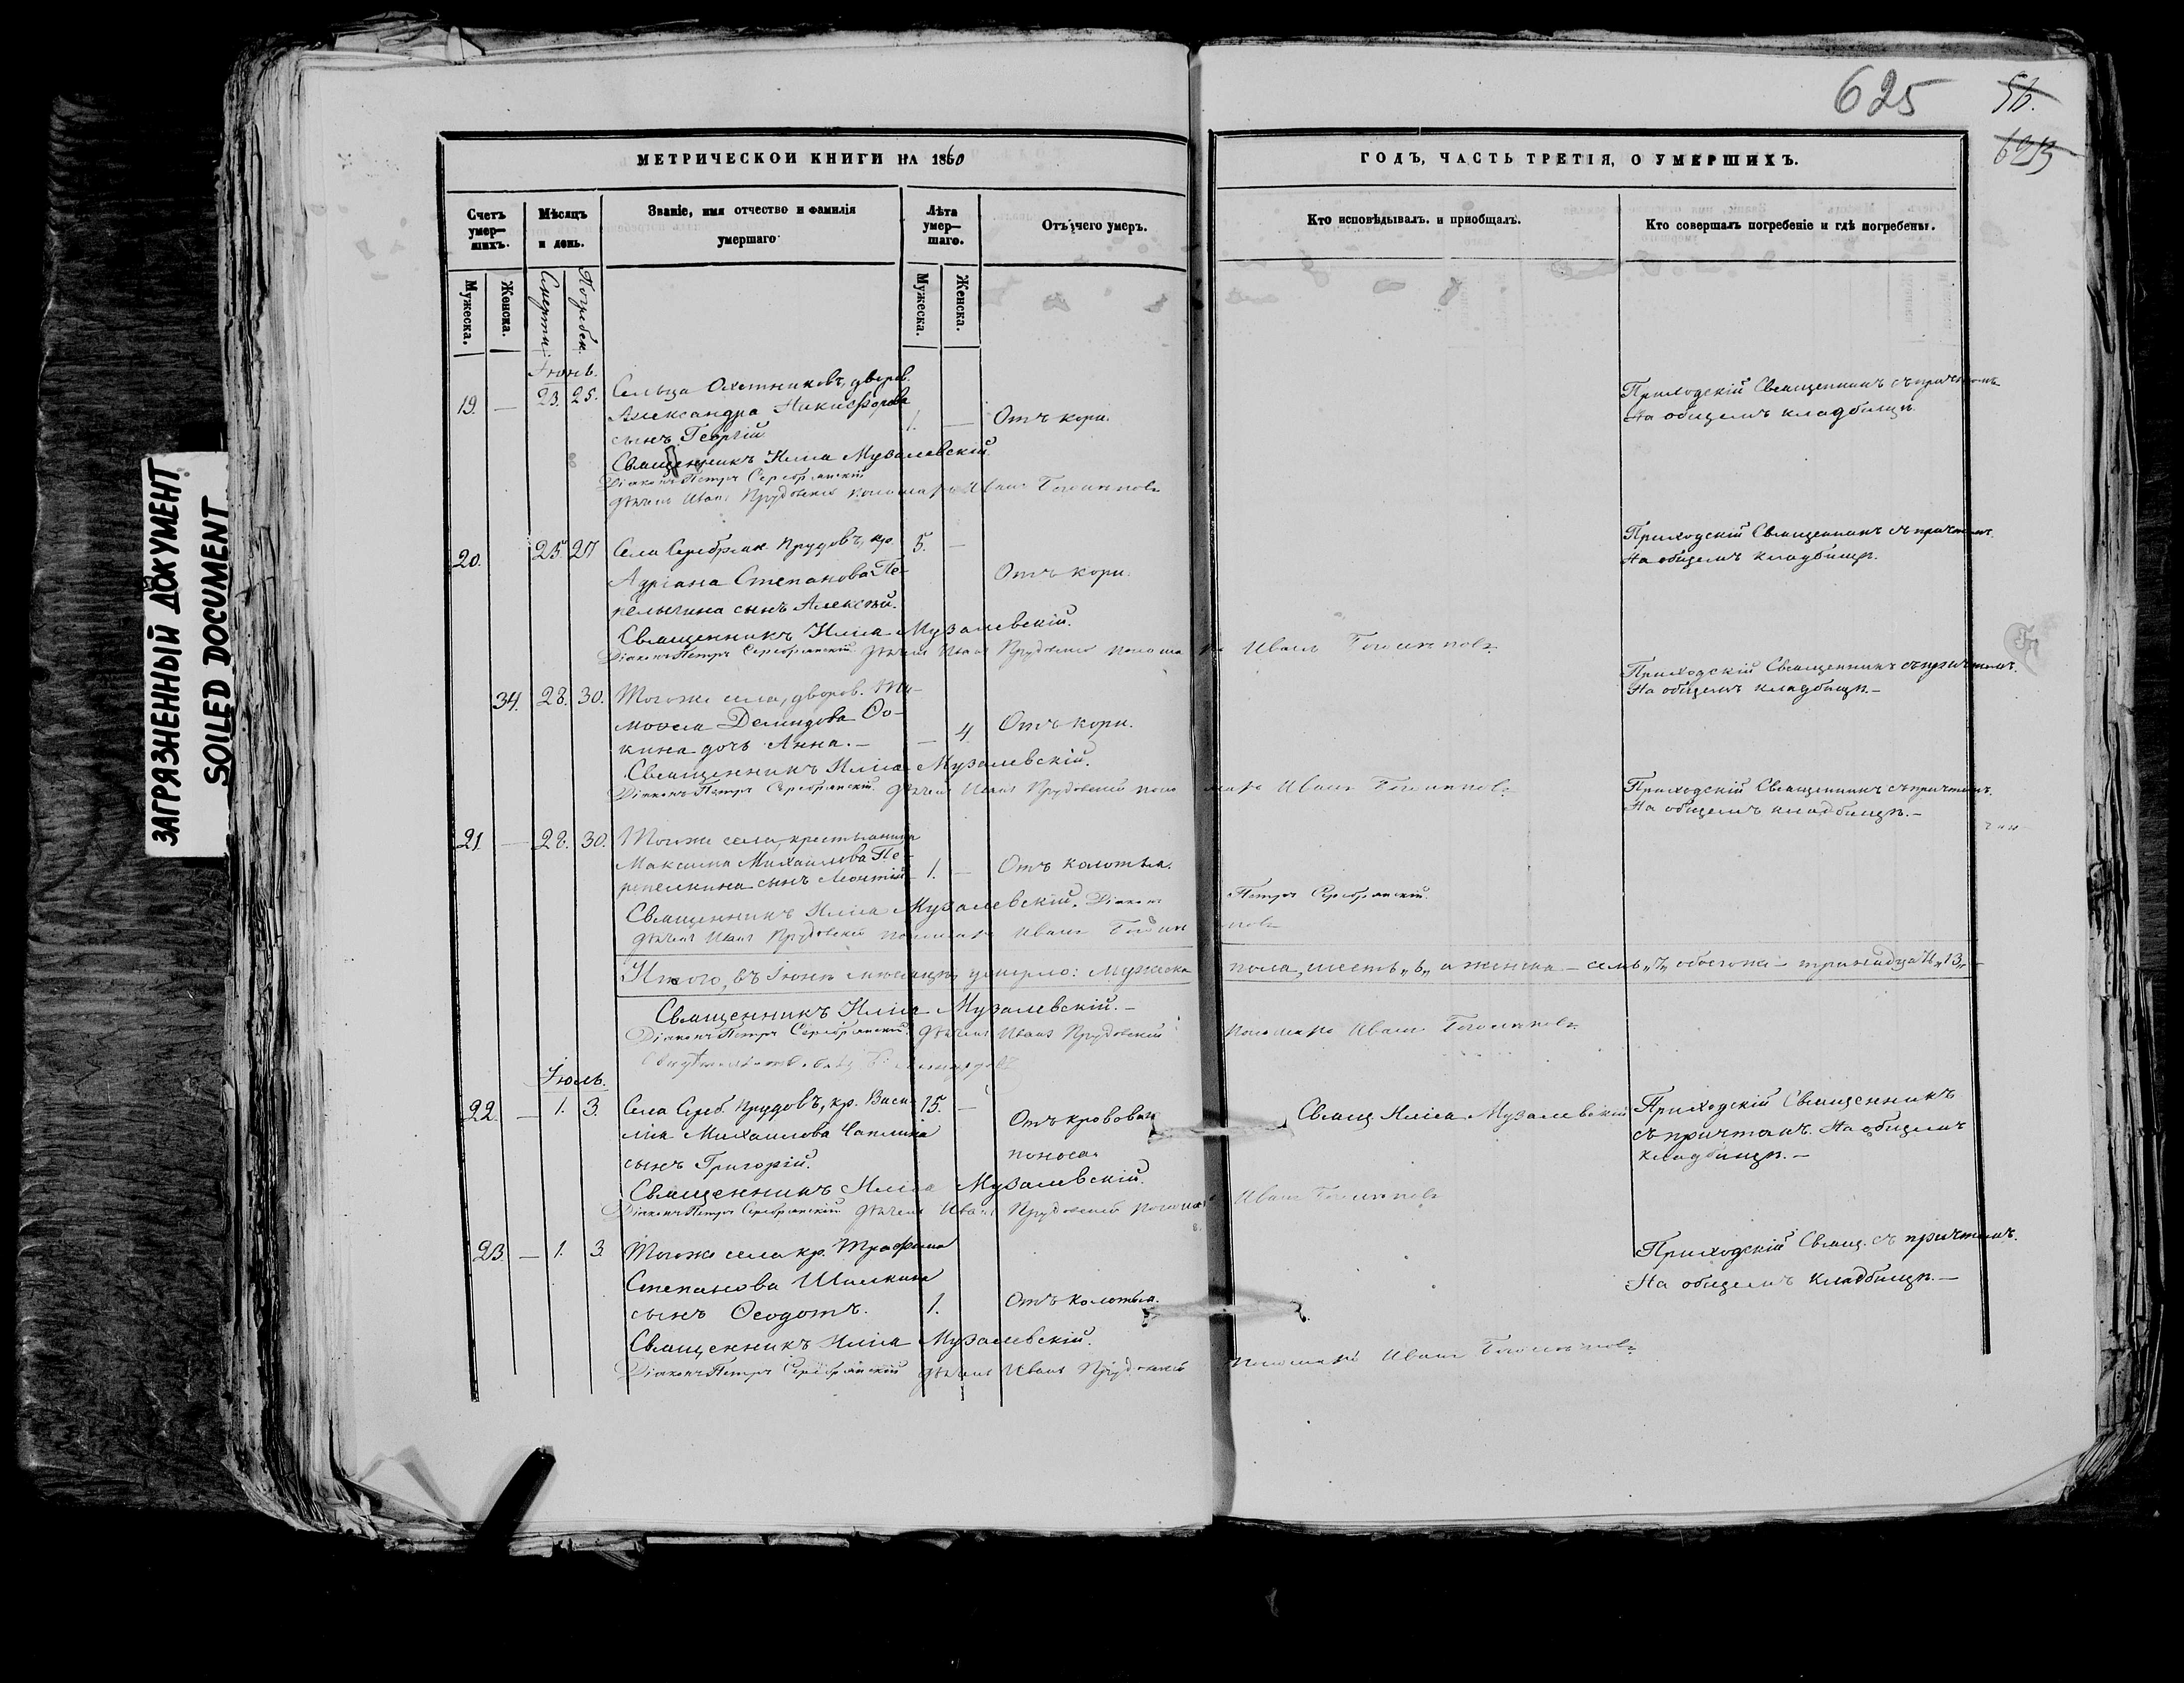 ЗАГРЯЗНЕННЫЙ ДОКУМЕНТ
SOILED DOCUMENT
625
56.
МЕТРИЧЕСКОЙ КНИГИ НА 1860
ГОДЪ, ЧАСТЬ ТРЕТІЯ, О УМЕРШИХЪ.
Счетъ умер—шихъ.
Мѣсяцъ и день.
Званіе, имя отчество и фамилія умершаго
Лѣта умер—шаго.
Отъ чего умеръ.
Кто исповѣдывалъ. и приобщалъ.
Кто совершалъ погребеніе и гдѣ погребены.
Мужеска.
Женска.
Смерти.
Погребен.
Мужеска.
Женска.
Іюнь.
19. — 23. 25. Сельца Охотниковъ, дворов.
Александра Никифорова
сынъ Георгій 1. — Отъ кори.
Приходскій Священникъ съ причтомъ
На общемъ кладбищѣ.
Священникъ Илія Музалевскій.
Діаконъ Петръ Серебрянскій
Дьячекъ Иванъ Прудовскій пономарь Иванъ
20. 25. 27 Села Серебрян. Прудовъ, кр. 5. —
Адріана Степанова Пе-
релыгина сынъ Алексѣй. Отъ кори.
Приходскій Священникъ съ причтомъ.
На общемъ кладбищѣ.
Священникъ Илія Музалевскій.
Діаконъ Петръ Серебрянскій Дьячекъ Иванъ Прудовскій пономарь Иванъ
34. 28. 30. Тогоже села, дворов. Ти-
моѳея Демидова Ѳо-
кина дочь Анна. — — 4 Отъ кори.
Приходскій Священникъ съ причтомъ.
На общемъ кладбищѣ. —
Священникъ Илія Музалевскій.
Діаконъ Петръ Серебрянскій Дьячекъ Иванъ Прудовскій пономарь Иванъ
21. — 28. 30. Тогоже села, крестьянина
Максима Михаилова Пе-
репелкина сынъ Леонтій 1. — Отъ колотья.
Приходскій Священникъ съ причтомъ.
На общемъ кладбищѣ. —
Священникъ Илія Музалевскій. Діаконъ Петръ Серебрянскій
Дьячекъ Иванъ Прудовскій пономарь Иванъ
Итого, въ Іюнѣ мѣсяцѣ, умерло: мужеска пола, шесть „6„ а женска — семь „7„ обоегоже — тринадцать „13„
Священникъ Илія Музалевскій. —
Діаконъ Петръ Серебрянскій Дьячекъ Иванъ Прудовскій пономарь Иванъ
Іюль.
22. — 1. 3. Села Сереб. Прудовъ, кр. Васи- 15. —
лія Михаилова Чаплина
сынъ Григорій. Отъ кровован
поноса.
Свящ. Илія Музалевскій
Приходскій Священникъ
съ причтомъ. На общемъ
кладбищѣ. —
Священникъ Илія Музалевскій.
Діаконъ Петръ Серебрянскій Дьячекъ Иванъ Прудовскій пономарь Иванъ
23. — 1. 3 Тогоже села кр. Трофима
Степанова Шишкина
сынъ Ѳеодотъ. 1. Отъ колотья.
Приходскій Свящ. съ причтомъ.
На общемъ кладбищѣ. —
Священникъ Илія Музалевскій.
Діаконъ Петръ Серебрянскій Дьячекъ Иванъ Прудовскій пономарь Иванъ